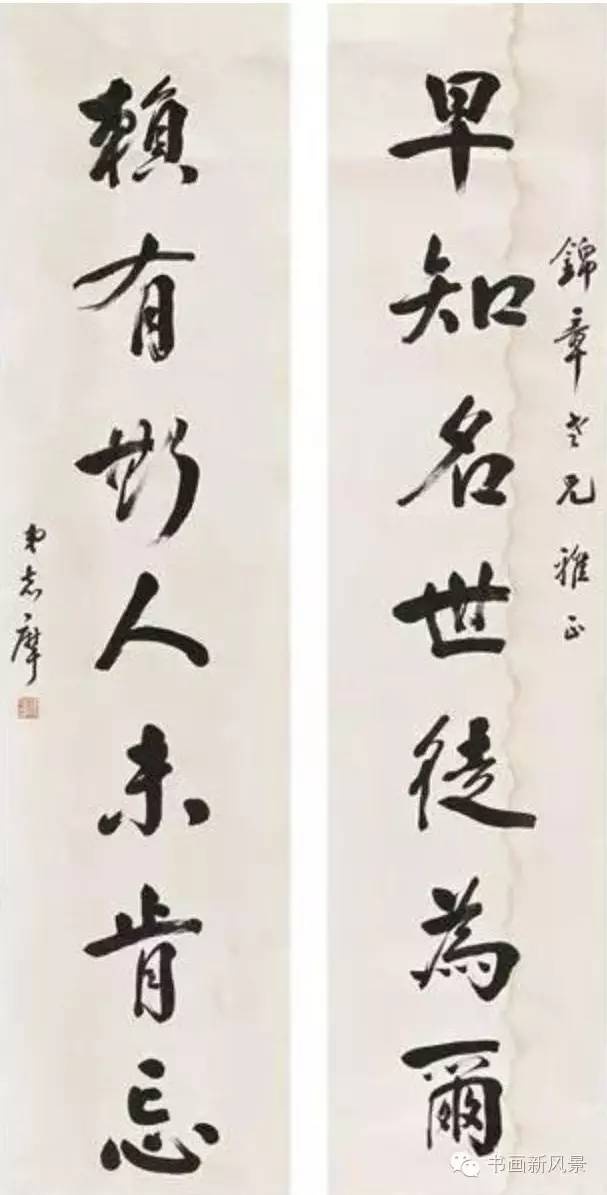 錦章老兄雅正
早知名世徒為爾
賴有斯人未肯忘
弟志摩
书画新风景